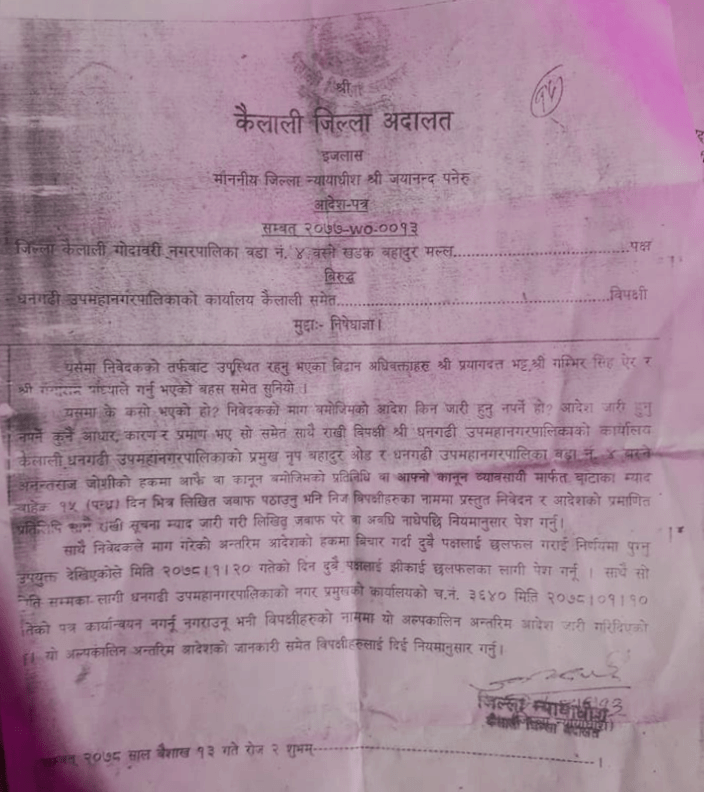 श्री
कैलाली जिल्ला अदालत
इजलास
माननीय जिल्ला न्यायाधीश श्री जयानन्द पनेरु
आदेश-पत्र
सम्बत् २०७७-WO-००१३
जिल्ला कैलाली गोदावरी नगरपालिका वडा नं. ४ बस्ने खडक बहादुर मल्ल..............................पक्ष
बिरुद्ध
धनगढी उपमहानगरपालिकाको कार्यालय कैलाली समेत..............................विपक्षी
मुद्दाः- निषेधाज्ञा।
यसमा निवेदकको तर्फबाट उपस्थित रहनु भएका बिद्वान अधिवक्ताहरु श्री प्रयागदत्त भट्ट,श्री गम्भिर सिंह ऐर र
श्री गर्नु भएको बहस समेत सुनियो ।
यसमा के कसो भएको हो? निवेदकको माग बमोजिमको आदेश किन जारी हुनु नपर्ने हो? आदेश जारी हुनु
नपर्ने कुनै आधार, कारण र प्रमाण भए सो समेत साथै राखी विपक्षी श्री धनगढी उपमहानगरपालिकाको कार्यालय
कैलाली,धनगढी उपमहानगरपालिकाको प्रमुख नृप बहादुर ओड र धनगढी उपमहानगरपालिका वडा नं. ४ बस्ने
अनन्तराज जोशीको हकमा आफै वा कानून बमोजिमको प्रतिनिधि वा आफ्नो कानून व्यावसायी मार्फत बाटाका म्याद
बाहेक १५ (पन्ध्र) दिन भित्र लिखित जवाफ पठाउनु भनि निज विपक्षीहरुका नाममा प्रस्तुत निवेदन र आदेशको प्रमाणित
प्रतिलिपि साथै राखी सूचना म्याद जारी गरी लिखित जवाफ परे वा अवधि नाघेपछि नियमानुसार पेश गर्नु।
साथै निवेदकले माग गरेको अन्तरिम आदेशको हकमा बिचार गर्दा दुबै पक्षलाई छलफल गराई निर्णयमा पुग्नु
उपयुक्त देखिएकोले मिति २०७८।१।२० गतेको दिन दुबै पक्षलाई झीकाई छलफलका लागी पेश गर्नू । साथै सो
मिति सम्मका लागी धनगढी उपमहानगरपालिकाको नगर प्रमुखको कार्यालयको च.नं. ३६४० मिति २०७८।०१।१०
को पत्र कार्यान्वयन नगर्नू नगराउनू भनी विपक्षीहरुको नाममा यो अल्पकालिन अन्तरिम आदेश जारी गरिदिएको
। यो अल्पकालिन अन्तरिम आदेशको जानकारी समेत विपक्षीहरुलाई दिई नियमानुसार गर्नु।
जिल्ला न्यायाधीश
कैलाली जिल्ला अदालत
सम्बत् २०७८ साल बैशाख १३ गते रोज २ शुभम्------------------------------।